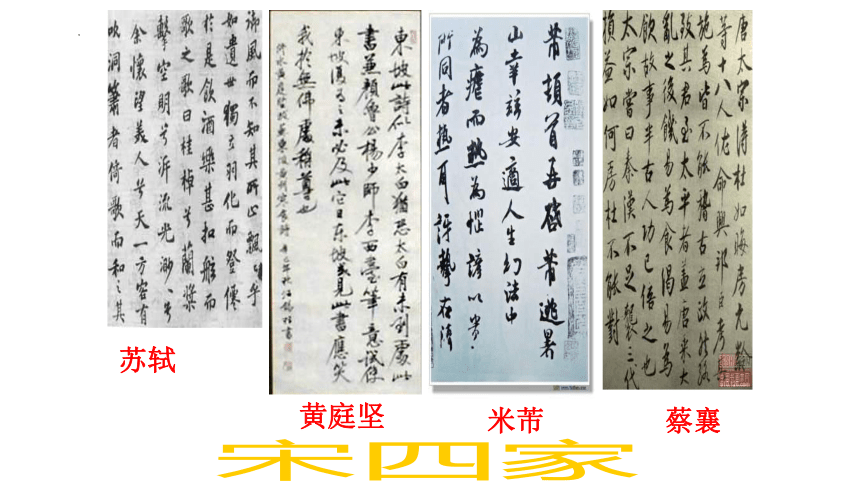 御風而不知其所止飄〻乎
如遺世獨立羽化而登僊
於是飲酒樂甚扣舷而
歌之歌曰桂棹兮蘭槳
擊空明兮泝流光渺〻兮
余懷望美人兮天一方客有
吹洞簫者倚歌而和之其
苏轼
東坡此詩似李太白猶恐太白有未到處此
書兼顏魯公楊少師李西臺筆意試使
東坡復為之未必及此它日東坡或見此書應笑
我於無佛處稱尊也
黄庭坚
芾頓首再啓芾逃暑
山幸茲安適人生幻法中
為虐而熱為惱諺以貴〻
所同者熱耳訝挚在清
米芾
唐太宗得杜如海房元齡
等十八人佐命興邦臣考其
施為皆不能稽古立政
致其君至太平者蓋唐承大
亂之後饑易為食渴易為
飲故事半古人功已倍之也
太宗嘗曰秦漢不足襲三代
損益如何房杜不能對
蔡襄
宋四家